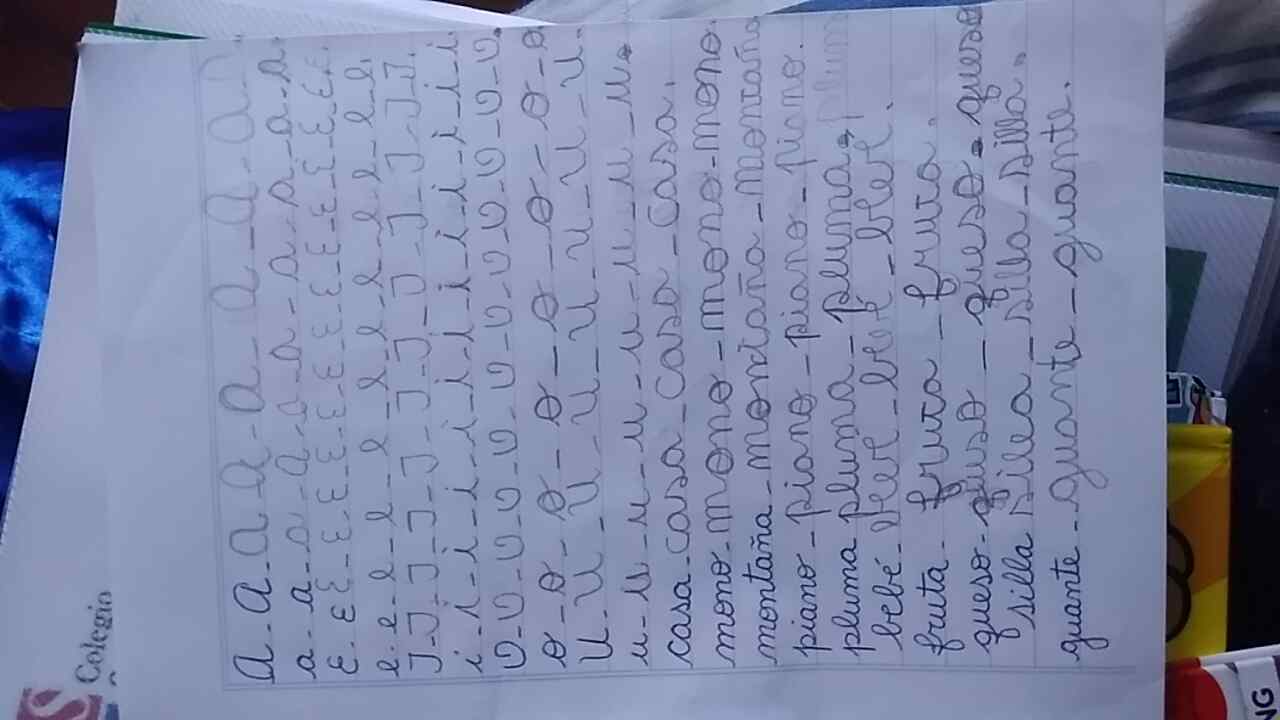 Colegio
A-A-A-A-A-A-A-A-A
a-a-a-a-a-a-a-a-a-a
E-E-E-E-E-E-E-E-E-E-E-E
e-e-e-e-e-e-e-e-e-e
I-I-I-I-I-I-I-I-I-I-I.
i-i-i-i-i-i-i-i-i-i-i
O-O-O-O-O-O-O-O-O-O-O.
o-o-o-o-o-o-o-o
U-U-U-U-U-U-U-U.
u-u-u-u-u-u-u-u.
casa-casa-casa-casa.
mono-mono-mono-mono-mono.
montaña-montaña-montaña
piano-piano-piano-piano.
pluma pluma-pluma, plum
bebé-
fruta-fruta-fruta.
queso-queso-queso.queso
silla silla-silla-silla.
guante-guante-guante.